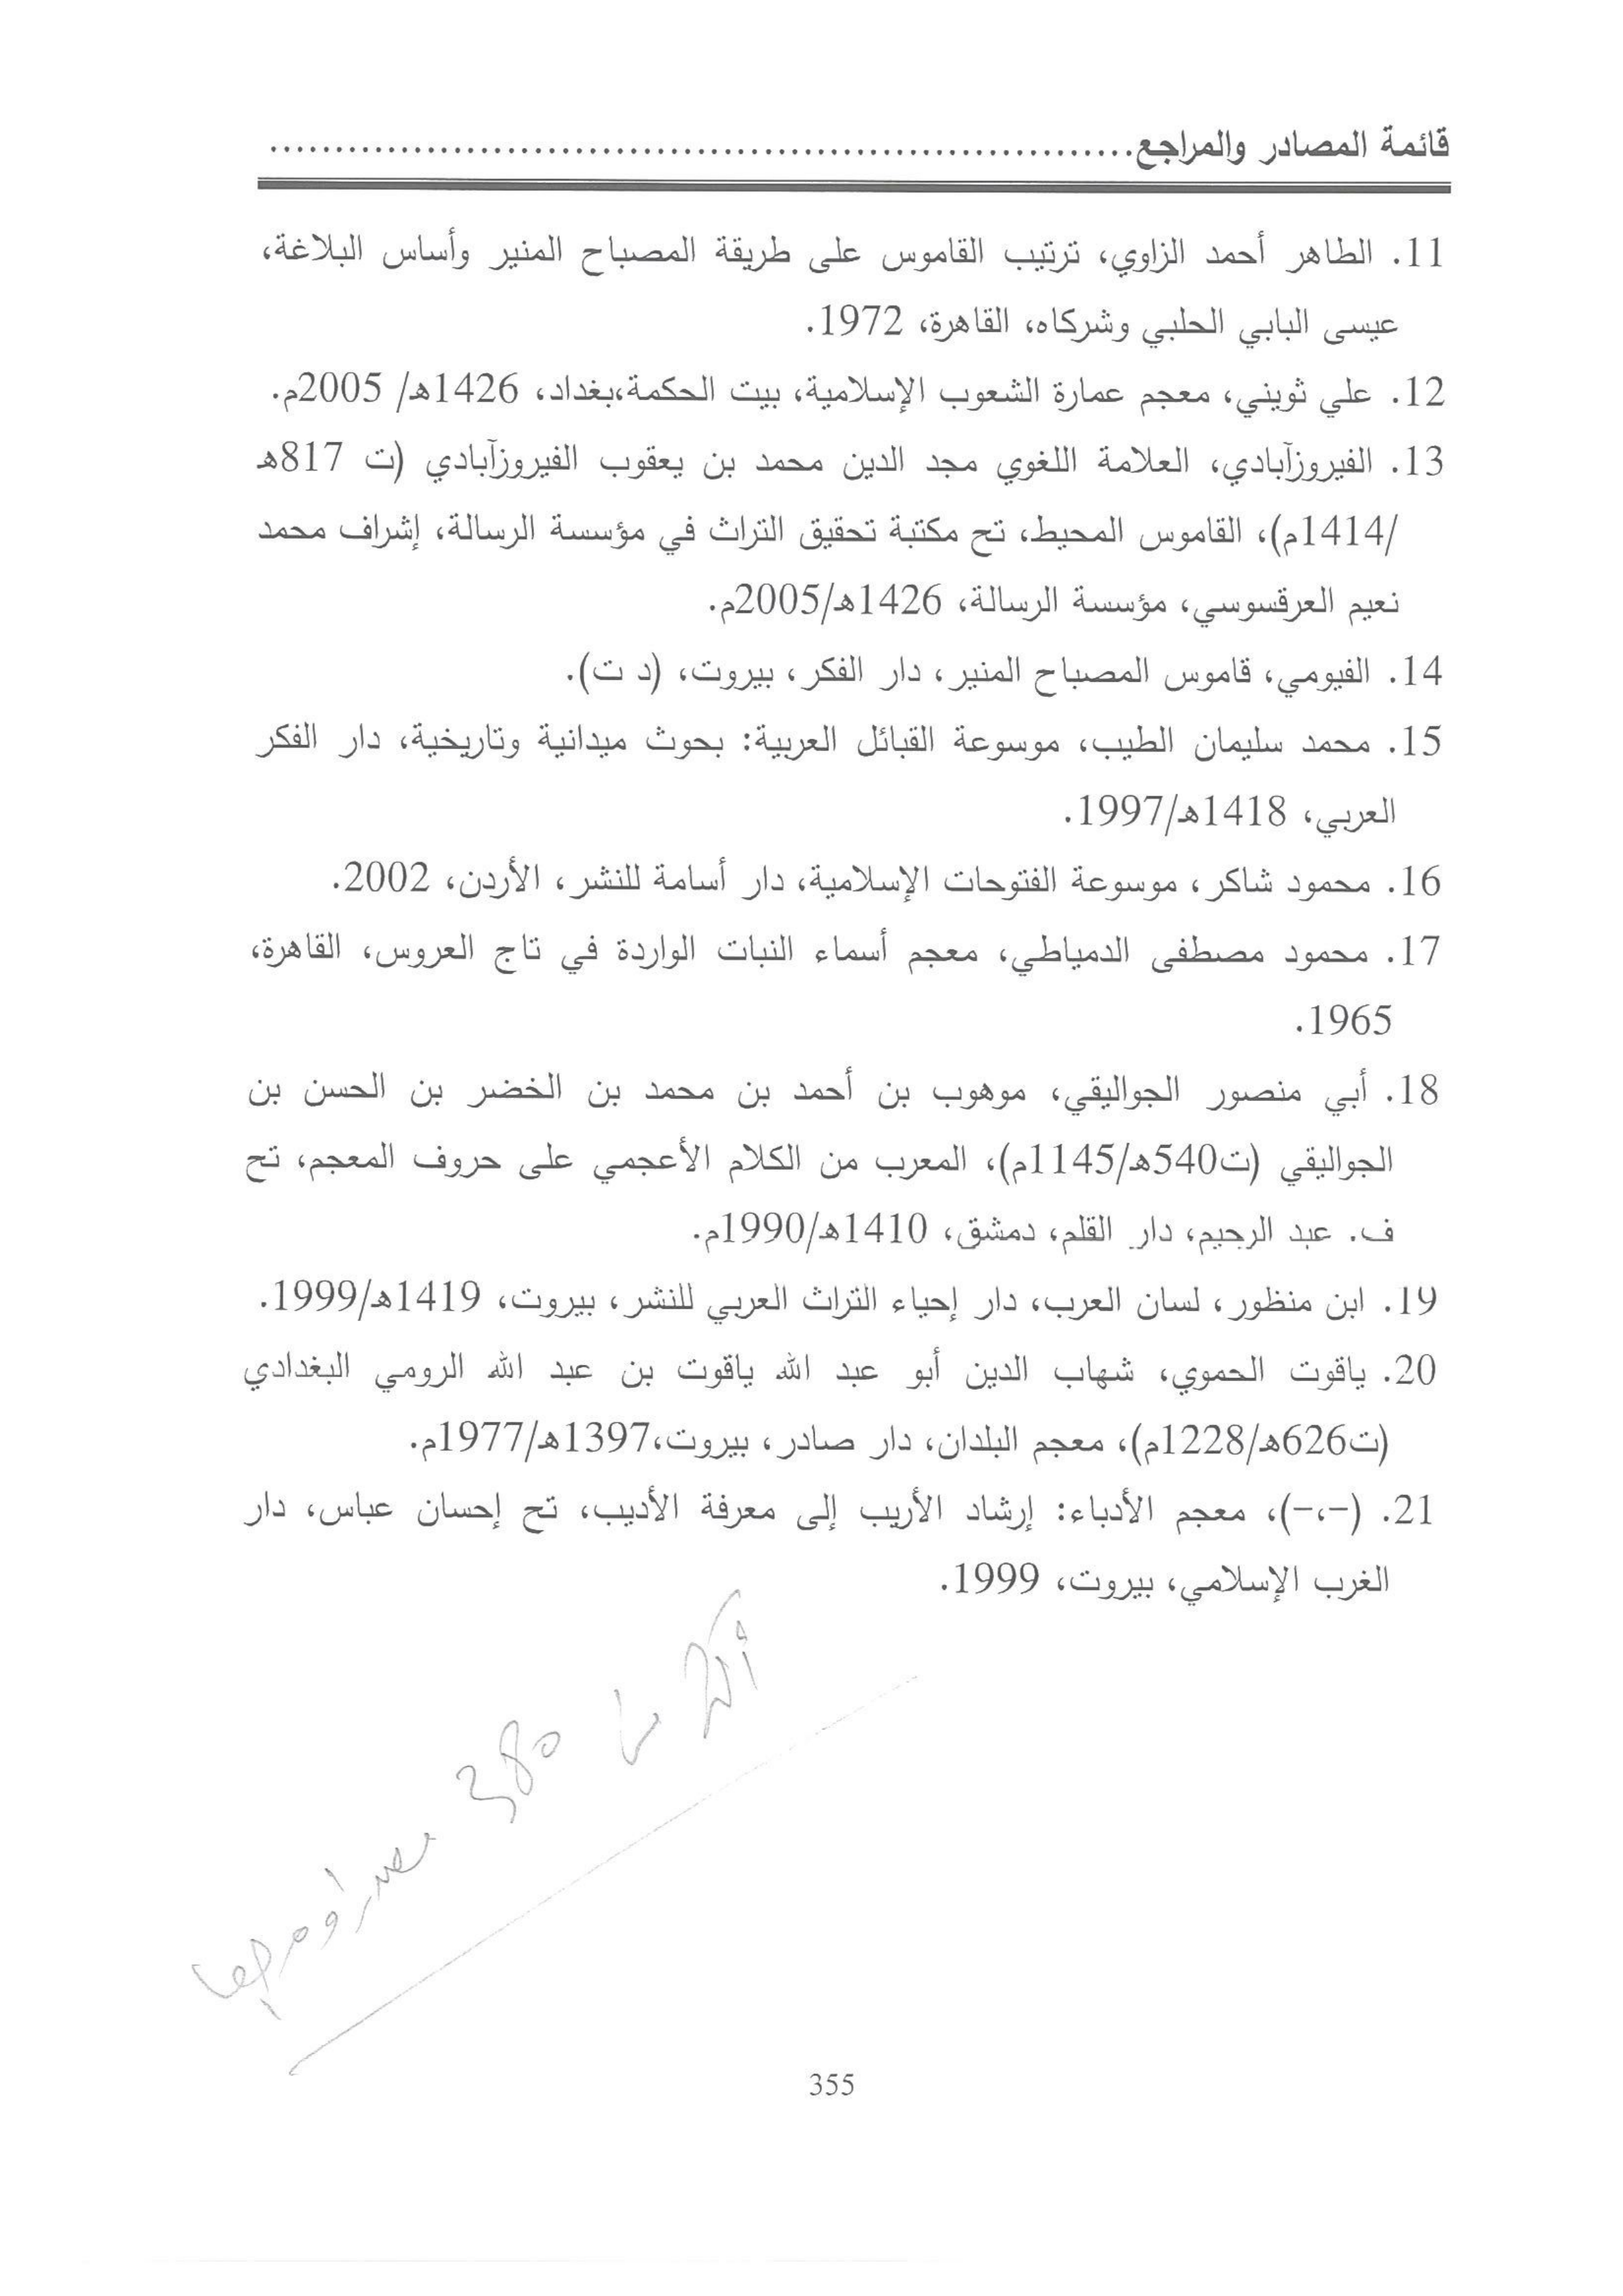 قائمة المصادر والمراجع......................................................................
11. الطاهر أحمد الزاوي، ترتيب القاموس على طريقة المصباح المنير وأساس البلاغة،
عيسى البابي الحلبي وشركاه، القاهرة، 1972.
12. علي ثويني، معجم عمارة الشعوب الإسلامية، بيت الحكمة،بغداد، 1426هـ/ 2005م.
13. الفيروزآبادي، العلامة اللغوي مجد الدين محمد بن يعقوب الفيروزآبادي (ت 817هـ
/1414م)، القاموس المحيط، تح مكتبة تحقيق التراث في مؤسسة الرسالة، إشراف محمد
نعيم العرقسوسي، مؤسسة الرسالة، 1426هـ/2005م.
14. الفيومي، قاموس المصباح المنير، دار الفكر، بيروت، (د ت).
15. محمد سليمان الطيب، موسوعة القبائل العربية: بحوث ميدانية وتاريخية، دار الفكر
العربي، 1418هـ/1997.
16. محمود شاكر، موسوعة الفتوحات الإسلامية، دار أسامة للنشر، الأردن، 2002.
17. محمود مصطفى الدمياطي، معجم أسماء النبات الواردة في تاج العروس، القاهرة،
1965.
18. أبي منصور الجواليقي، موهوب بن أحمد بن محمد بن الخضر بن الحسن بن
الجواليقي (ت540هـ/1145م)، المعرب من الكلام الأعجمي على حروف المعجم، تح
ف. عبد الرحيم، دار القلم، دمشق، 1410هـ/1990م.
19. ابن منظور، لسان العرب، دار إحياء التراث العربي للنشر، بيروت، 1419هـ/1999.
20. ياقوت الحموي، شهاب الدين أبو عبد الله ياقوت بن عبد الله الرومي البغدادي
(ت626هـ/1228م)، معجم البلدان، دار صادر، بيروت،1397هـ/1977م.
21. (-،-)، معجم الأدباء: إرشاد الأريب إلى معرفة الأديب، تح إحسان عباس، دار
الغرب الإسلامي، بيروت، 1999.
أكثر من 380 مصدرا ومرجعا
355